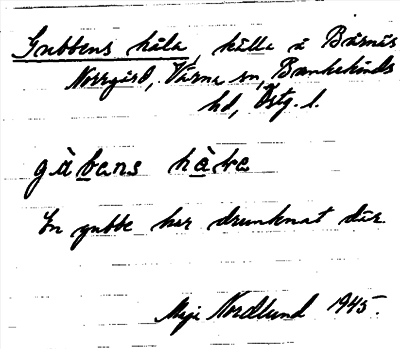 Gubbens håla, källa å Bäsnäs
Norrgård, Värna sn, Bankekinds
hd, Östg. l.
gàbens hàla
En gubbe har drunknat där.
Maja Nordlund 1945.